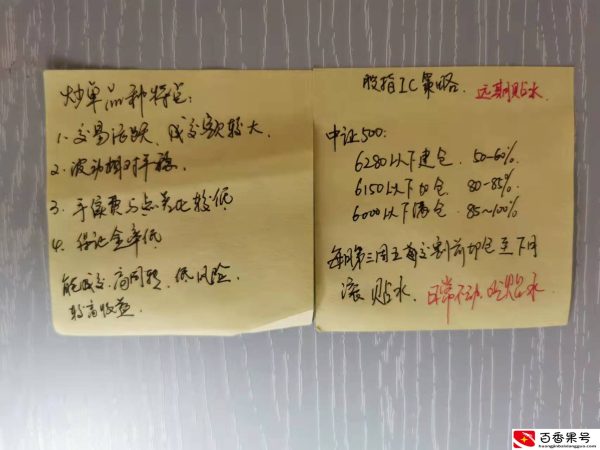 炒单品种特点:
1. 交易活跃、成交额较大
2. 波动相对平稳.
3. 手续费与点差比较低
4. 保证金率低
能成交、高周转、低风险、
较高收益.
股指IC策略. 远期贴水.
中证500:
6280以下建仓. 50-60%.
6150以下加仓. 80-85%.
6000以下满仓. 85~100%
每月第三周五前交割前移仓至下月
滚贴水. 日常不动、吃贴水.
百香果号